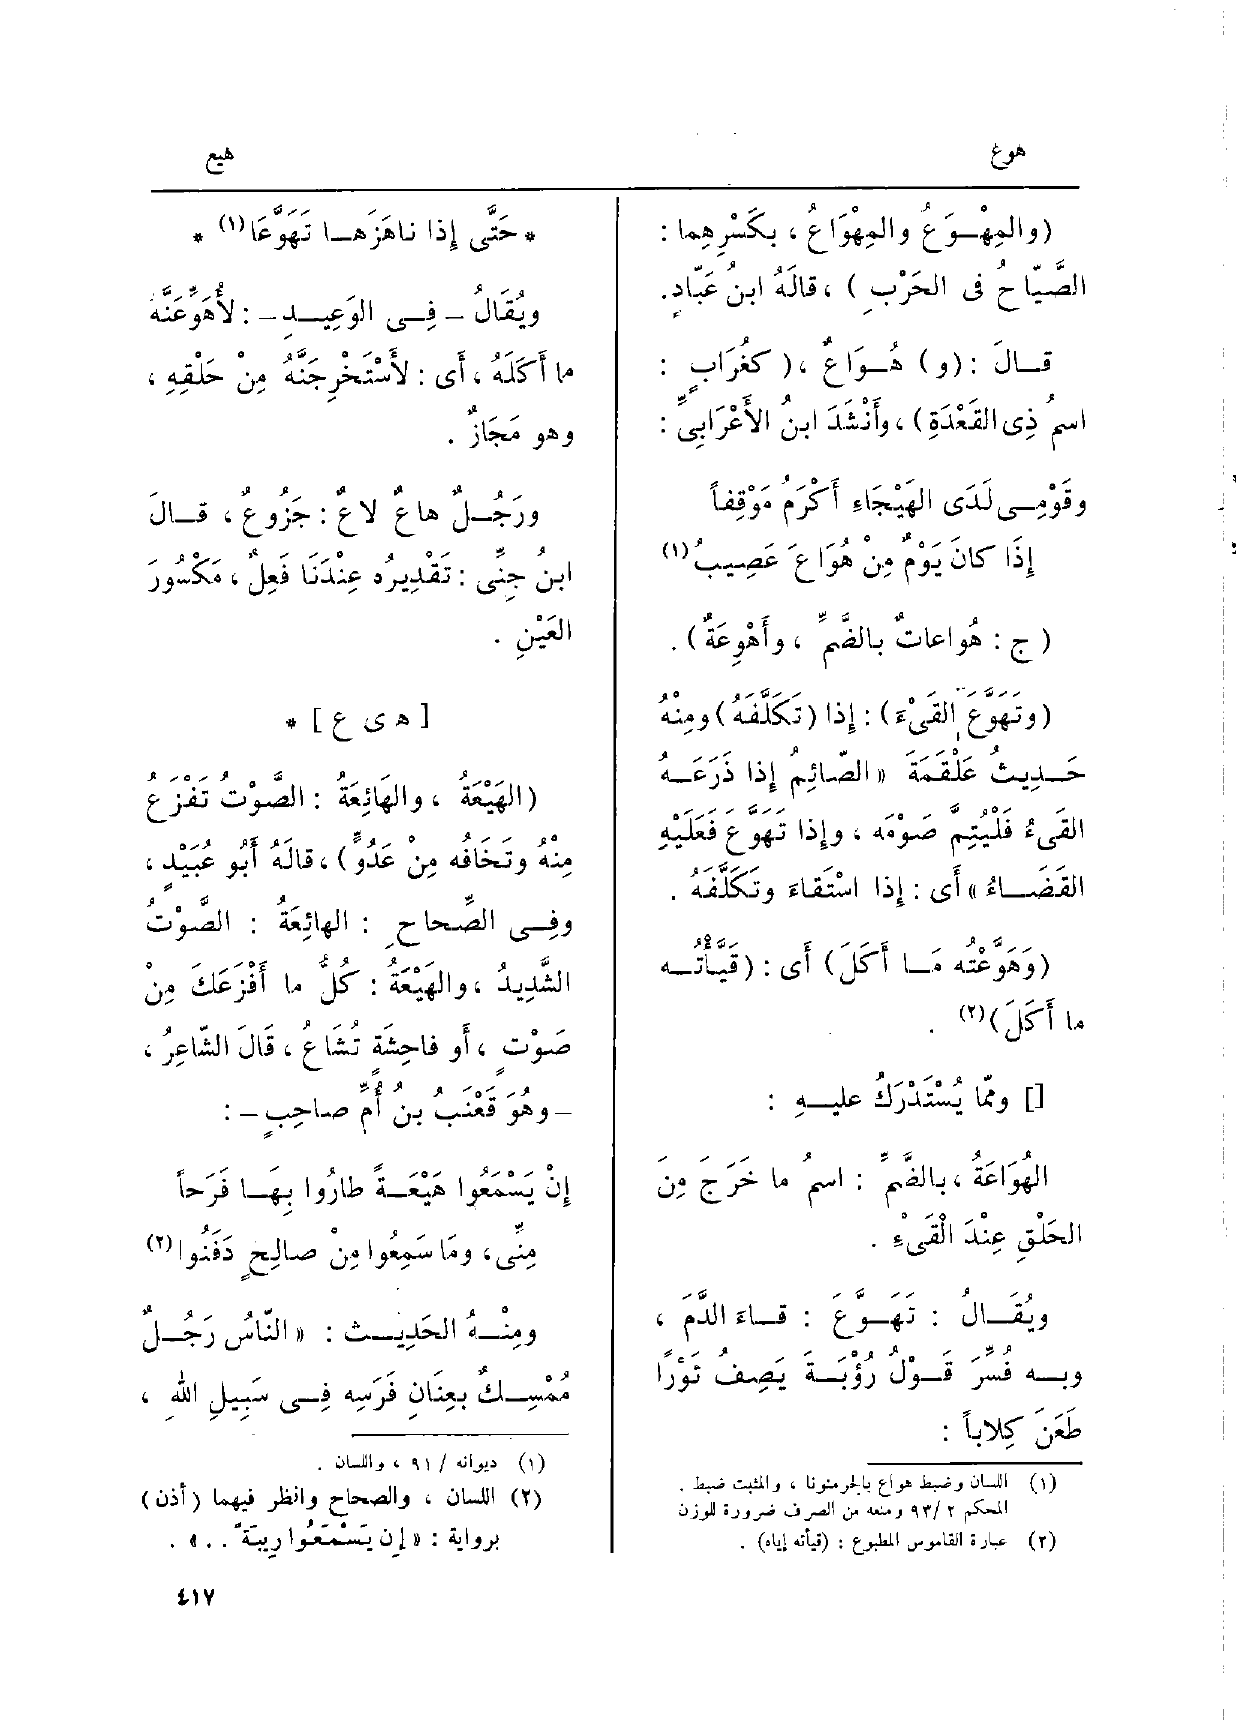 هوع
هيع
(والمِهْـوَعُ والمِهْوَاعُ ، بكَسْرِهِما :
الصَّيّاحُ فى الحَرْبِ ) ، قالَهُ ابنُ عَبّادٍ.
قــالَ : (و) هُـوَاعٌ ، ( كغُرَابٍ :
اسمُ ذِى القَعْدَةِ) ، وأَنْشَدَ ابنُ الأَعْرَابِىِّ :
وقَوْمِـى لَدَى الهَيْجَاءِ أَكْرَمُ مَوْقِفاً
إِذَا كانَ يَوْمٌ مِنْ هُوَاعَ عَصِيبُ (١)
( ج : هُواعاتٌ بالضَّمِّ ، وأَهْوِعَةٌ) .
(وتَهَوَّعَ القَىْءَ) : إِذا (تَكَلَّفَهُ) ومِنْهُ
حَـدِيثُ عَلْقَمَةَ « الصّائِمُ إِذا ذَرَعَـهُ
القَىءُ فَلْيُتِمَّ صَوْمَه ، وإِذا تَهَوَّعَ فَعَلَيْهِ
القَضَـاءُ » أَى : إِذا اسْتَقاءَ وتَكَلَّفَهُ .
(وَهَوَّعْتُه مَـا أَكَلَ) أَى : (قَيَّأْتُـه
ما أَكَلَ) (٢) .
[] ومّا يُسْتَدْرَكُ عليـهِ :
الهُوَاعَةُ ، بالضَّمِّ : اسمُ ما خَرَجَ مِنَ
الحَلْقِ عِنْدَ الْقَىْءِ .
ويُقَـالُ : تَهَـوَّعَ : قـاءَ الدَّمَ ،
وبــه فُسِّرَ قَـوْلُ رُؤْبَـةَ يَصِفُ ثَوْرًا
طَعَنَ كِلاباً :
(١) اللسان وضبط هواع بالجر منونا ، والمثبت ضبط .
المحكم ٢ /٩٣ ومنعه من الصرف ضرورة للوزن
(٢) عبارة القاموس المطبوع : (قيأته إياه) .
* حَتَّى إِذا ناهَزَهـا تَهَوَّعَا (١) *
ويُقَالُ – فِـى الوَعِيـدِ – : لأُهَوِّعَنَّهُ
ما أَكَلَهُ ، أَى : لأَسْتَخْرِجَنَّهُ مِنْ حَلْقِهِ ،
وهو مَجَازٌ .
ورَجُـلٌ هاعٌ لاعٌ : جَزُوعٌ ، قـالَ
ابنُ جِنِّى : تَقْدِيرُه عِنْدَنَا فَعِلٌ ، مَكْسُورَ
العَيْنِ .
[ ه ى ع ] *
(الهَيْعَةُ ، والهائِعَةُ : الصَّوْتُ تَفْزَعُ
مِنْهُ وتَخَافُه مِن عَدُوٍّ) ، قالَهُ أَبُو عُبَيْدٍ ،
وفِـى الصِّحاحِ : الهائِعَةُ : الصَّوْتُ
الشَّدِيدُ ، والهَيْعَةُ : كُلُّ ما أَفْزَعَكَ مِنْ
صَوْتٍ ، أَو فاحِشَةٍ تُشَاعُ ، قَالَ الشّاعِرُ ،
– وهُوَ قَعْنَبُ بنُ أُمِّ صاحِبٍ – :
إِنْ يَسْمَعُوا هَيْعَـةً طارُوا بِهَـا فَرَحاً
مِنِّى ، ومَا سَمِعُوا مِنْ صالِحٍ دَفَنُوا (٢)
ومِنْـهُ الحَدِيـث : « النّاسُ رَجُـلٌ
مُمْسِـكٌ بعِنَانِ فَرَسِه فِـى سَبِيلِ اللهِ ،
(١) ديوانه / ٩١ ، واللسان .
(٢) اللسان ، والصحاح وانظر فيهما (أذن)
برواية : « إِن يَسْمَعُوا رِيبَةً . . » .
٤١٧